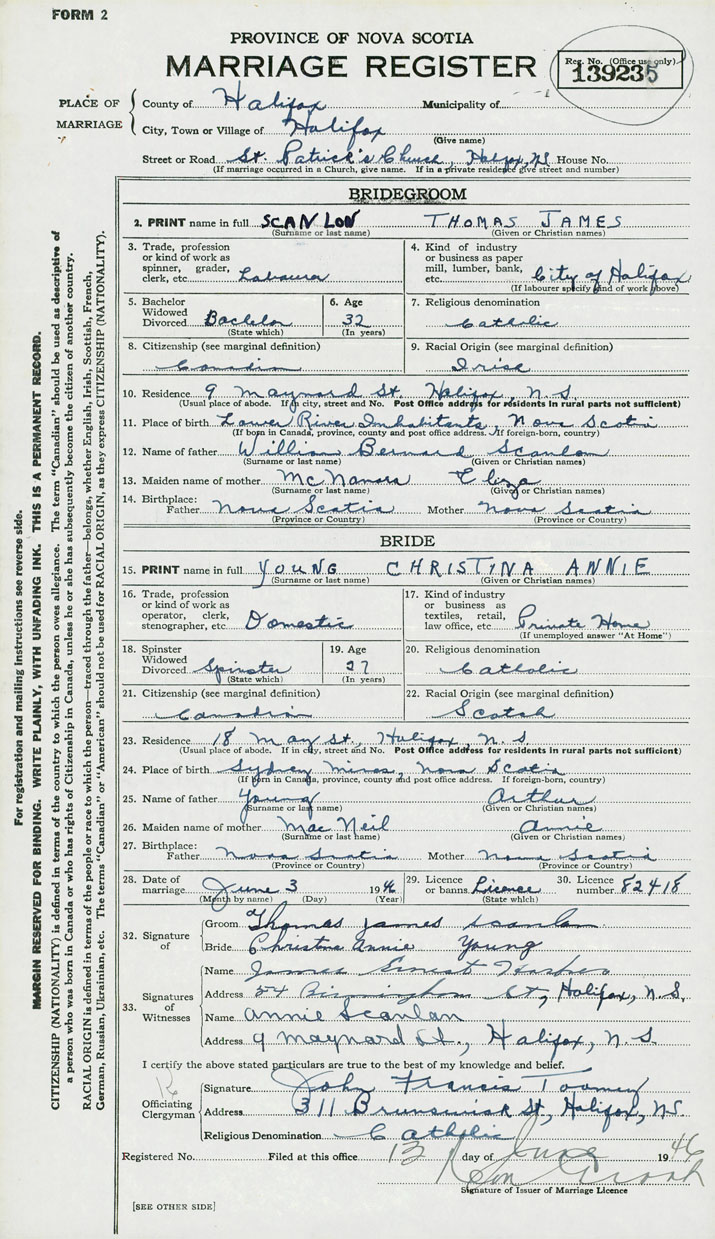 FORM 2
PROVINCE OF NOVA SCOTIA
MARRIAGE REGISTER
Reg. No. (Office use only)
139235
PLACE OF MARRIAGE
County of Halifax Municipality of
City, Town or Village of Halifax
(Give name)
Street or Road St. Patrick's Church, Halifax, N.S. House No.
(If marriage occurred in a Church, give name. If in a private residence give street and number)
BRIDEGROOM
2. PRINT name in full SCANLON THOMAS JAMES
(Surname or last name) (Given or Christian names)
3. Trade, profession or kind of work as spinner, grader, clerk, etc. Labourer
4. Kind of industry or business as paper mill, lumber, bank, etc. City of Halifax
(If labourer specify kind of work above)
5. Bachelor Widowed Divorced Bachelor
(State which)
6. Age 32
(In years)
7. Religious denomination
Catholic
8. Citizenship (see marginal definition)
Canadian
9. Racial Origin (see marginal definition)
Irish
10. Residence 9 Maynard St. Halifax N.S.
(Usual place of abode. If in city, street and No. Post Office address for residents in rural parts not sufficient)
11. Place of birth Lower River Inhabitants, Nova Scotia
(If born in Canada, province, county and post office address. If foreign-born, country)
12. Name of father William Bernard Scanlon
(Surname or last name) (Given or Christian names)
13. Maiden name of mother McNamara Eliza
(Surname or last name) (Given or Christian names)
14. Birthplace:
Father Nova Scotia Mother Nova Scotia
(Province or Country) (Province or Country)
BRIDE
15. PRINT name in full YOUNG CHRISTINA ANNIE
(Surname or last name) (Given or Christian names)
16. Trade, profession or kind of work as operator, clerk, stenographer, etc. Domestic
17. Kind of industry or business as textiles, retail, law office, etc. Private Home
(If unemployed answer "At Home")
18. Spinster Widowed Divorced Spinster
(State which)
19. Age 27
(In years)
20. Religious denomination
Catholic
21. Citizenship (see marginal definition)
Canadian
22. Racial Origin (see marginal definition)
Scotch
23. Residence 18 May St., Halifax, N.S
(Usual place of abode. If in city, street and No. Post Office address for residents in rural parts not sufficient)
24. Place of birth Sydney mines, Nova Scotia
(If born in Canada, province, county and post office address. If foreign-born, country)
25. Name of father Young Arthur
(Surname or last name) (Given or Christian names)
26. Maiden name of mother MacNeil Annie
(Surname or last name) (Given or Christian names)
27. Birthplace:
Father Nova Scotia Mother Nova Scotia
(Province or Country) (Province or Country)
28. Date of marriage June 3 1946
(Month by name) (Day) (Year)
29. Licence or banns Licence
(State which)
30. Licence number 82418
32. Signature of
Groom Thomas James Scanlan
Bride Christina Annie Young
33. Signatures of Witnesses
Name James Ernest
Address 54 Birmingham St, Halifax, N.S.
Name Annie Scanlan
Address 9 Maynard St., Halifax, N.S.
I certify the above stated particulars are true to the best of my knowledge and belief.
Officiating Clergyman
Signature John Francis Toomey
Address 311 Brunswick St, Halifax, N.S.
Religious Denomination Catholic
Registered No. Filed at this office 13 day of June 1946
Signature of Issuer of Marriage Licence
[SEE OTHER SIDE]
For registration and mailing instructions see reverse side.
MARGIN RESERVED FOR BINDING. WRITE PLAINLY, WITH UNFADING INK. THIS IS A PERMANENT RECORD.
CITIZENSHIP (NATIONALITY) is defined in terms of the country to which the person owes allegiance. The term "Canadian" should be used as descriptive of
a person who was born in Canada or who has rights of Citizenship in Canada, unless he or she has subsequently become the citizen of another country.
RACIAL ORIGIN is defined in terms of the people or race to which the person—traced through the father—belongs, whether English, Irish, Scottish, French,
German, Russian, Ukrainian, etc. The terms "Canadian" or "American" should not be used for RACIAL ORIGIN, as they express CITIZENSHIP (NATIONALITY).